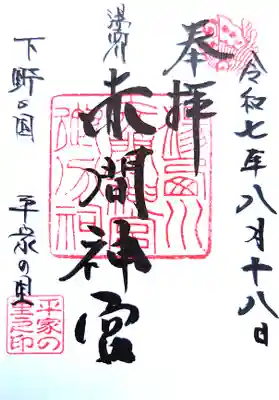 令和七年八月十八日
奉拝
湯西川
赤間神宮
下野の国 平家の里
平家の里之印